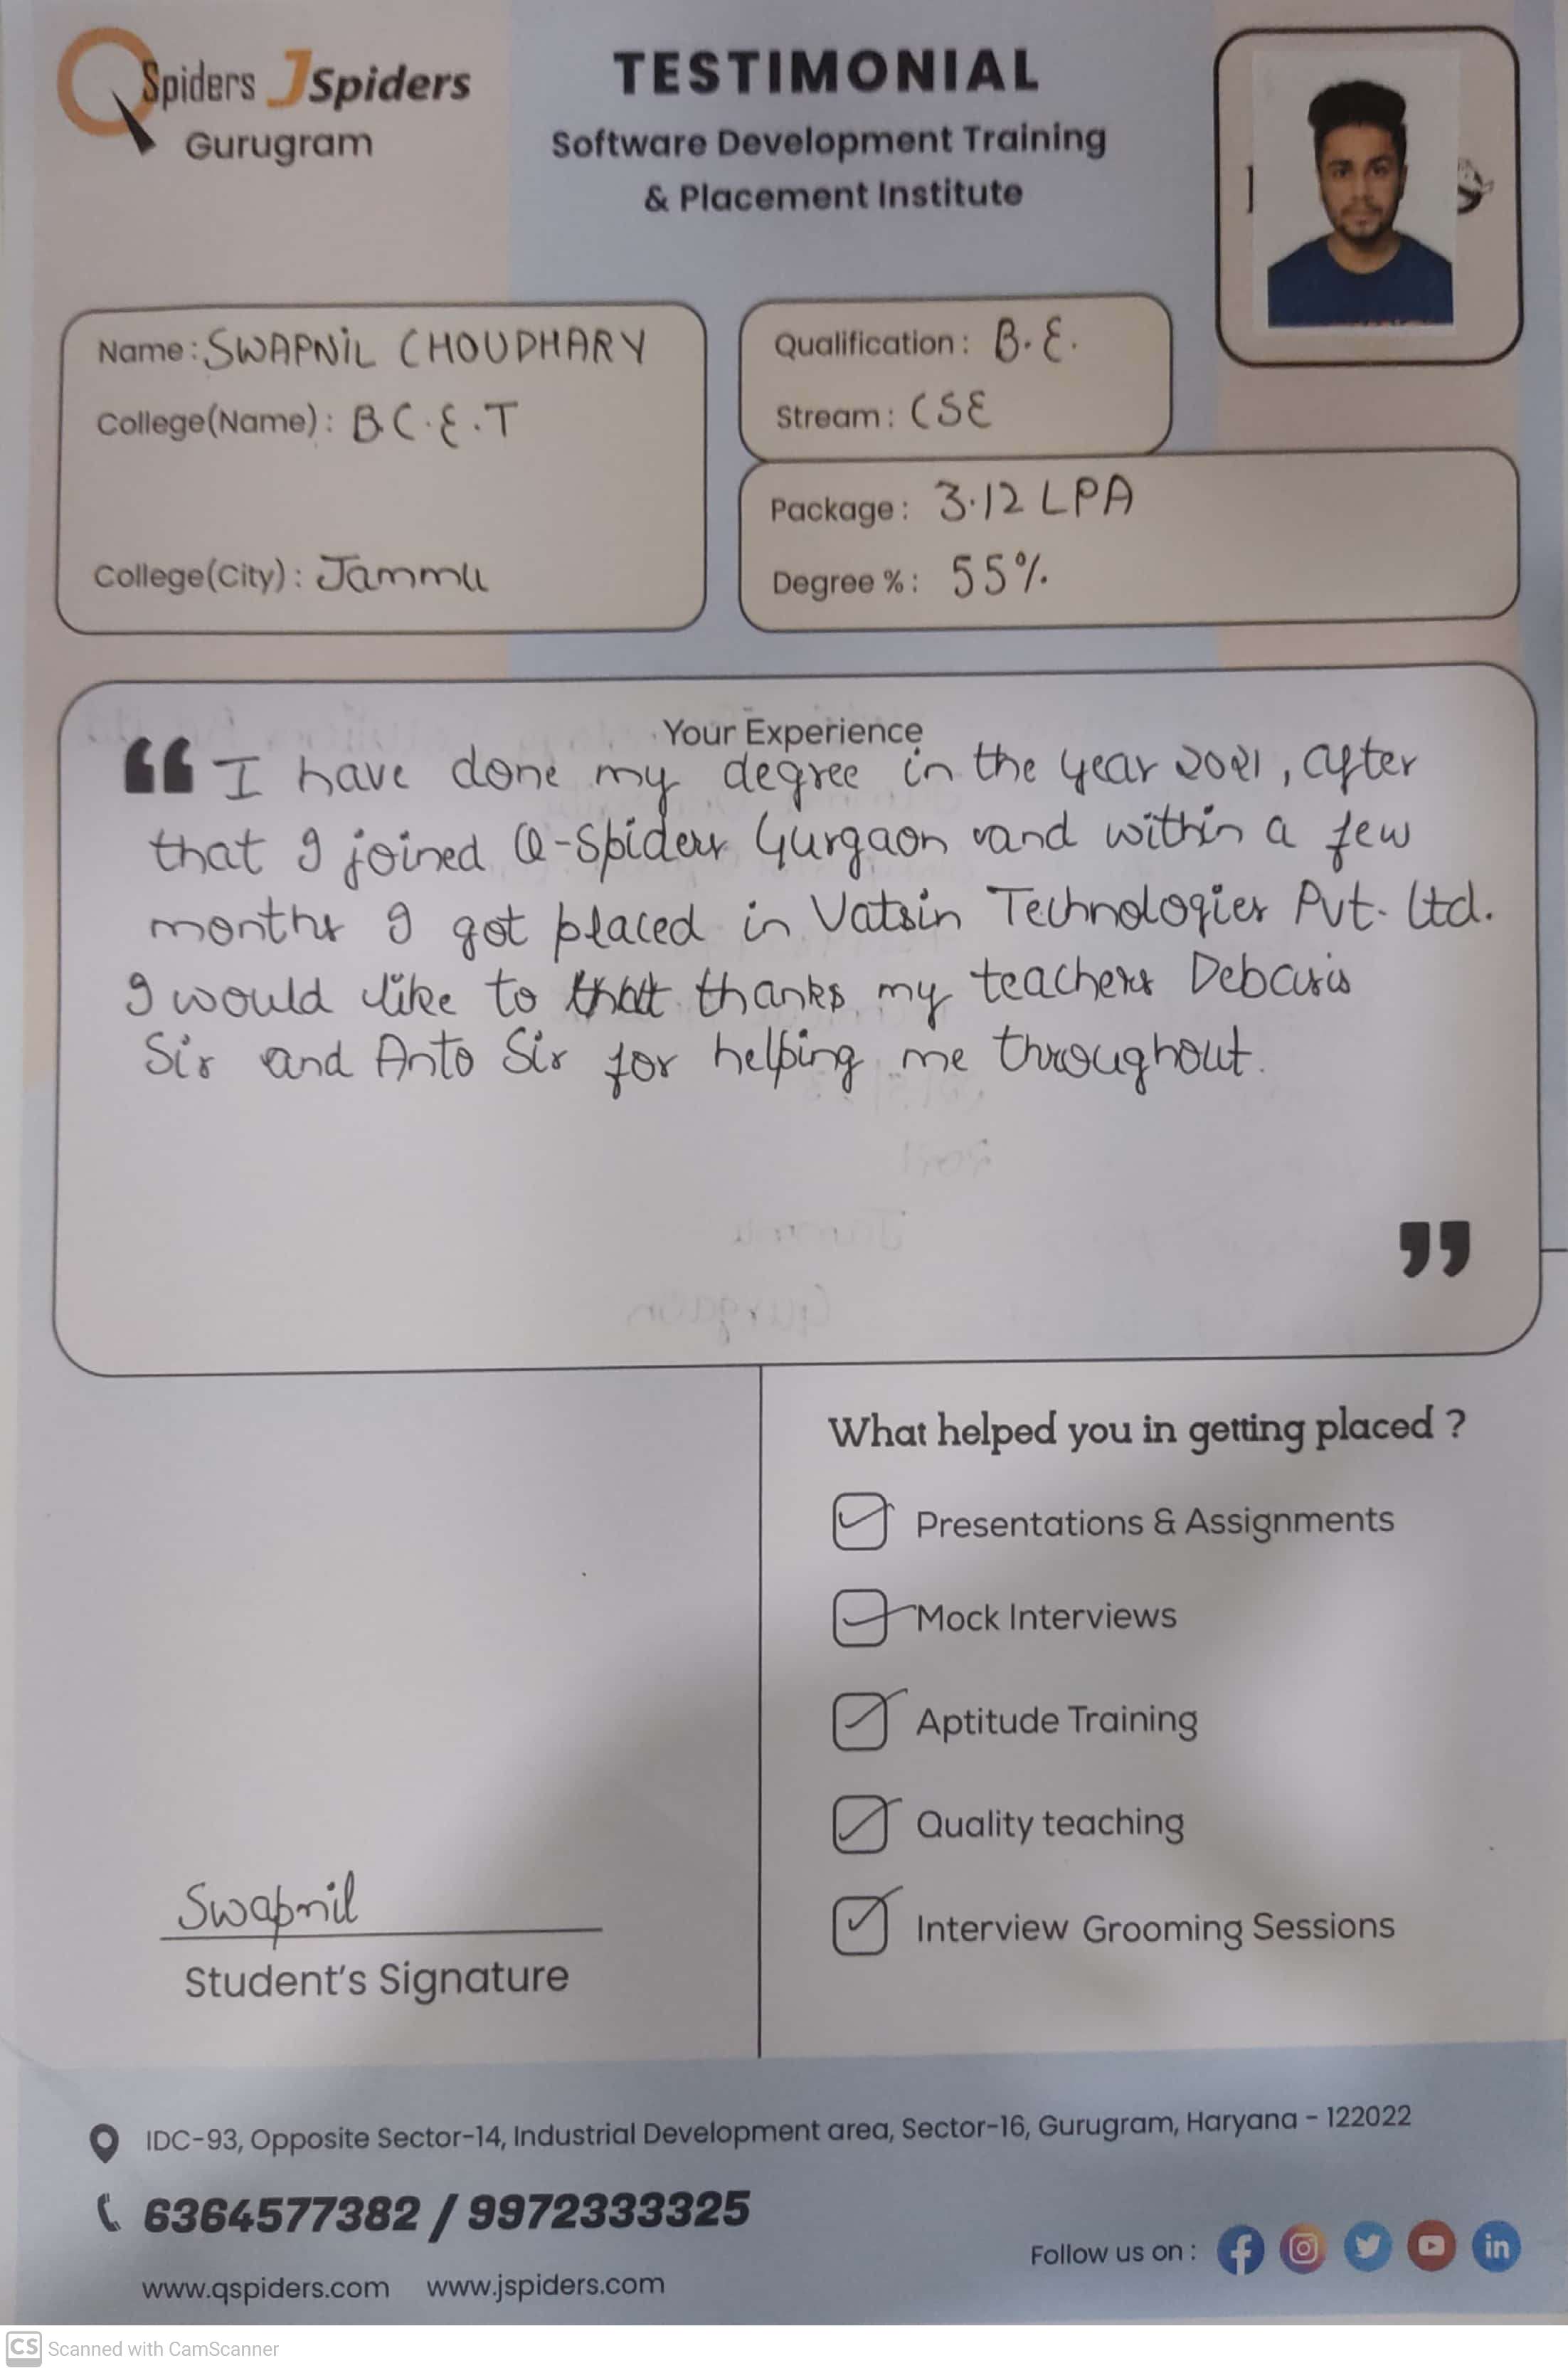 QSpiders JSpiders
Gurugram
TESTIMONIAL
Software Development Training
& Placement Institute
Name : SWAPNIL CHOUDHARY
College(Name) : B.C.E.T
College(City) : Jammu
Qualification : B.E.
Stream : CSE
Package : 3.12 LPA
Degree % : 55%
Your Experience
“ I have done my degree in the year 2021, after
that I joined Q-Spiders Gurgaon and within a few
months I got placed in Vatsin Technologies Pvt. Ltd.
I would like to thanks my teachers Debasis
Sir and Anto Sir for helping me throughout.
”
What helped you in getting placed ?
Presentations & Assignments
Mock Interviews
Aptitude Training
Quality teaching
Interview Grooming Sessions
Swapnil
Student's Signature
IDC-93, Opposite Sector-14, Industrial Development area, Sector-16, Gurugram, Haryana - 122022
6364577382 / 9972333325
www.qspiders.com www.jspiders.com
Follow us on :
CS Scanned with CamScanner